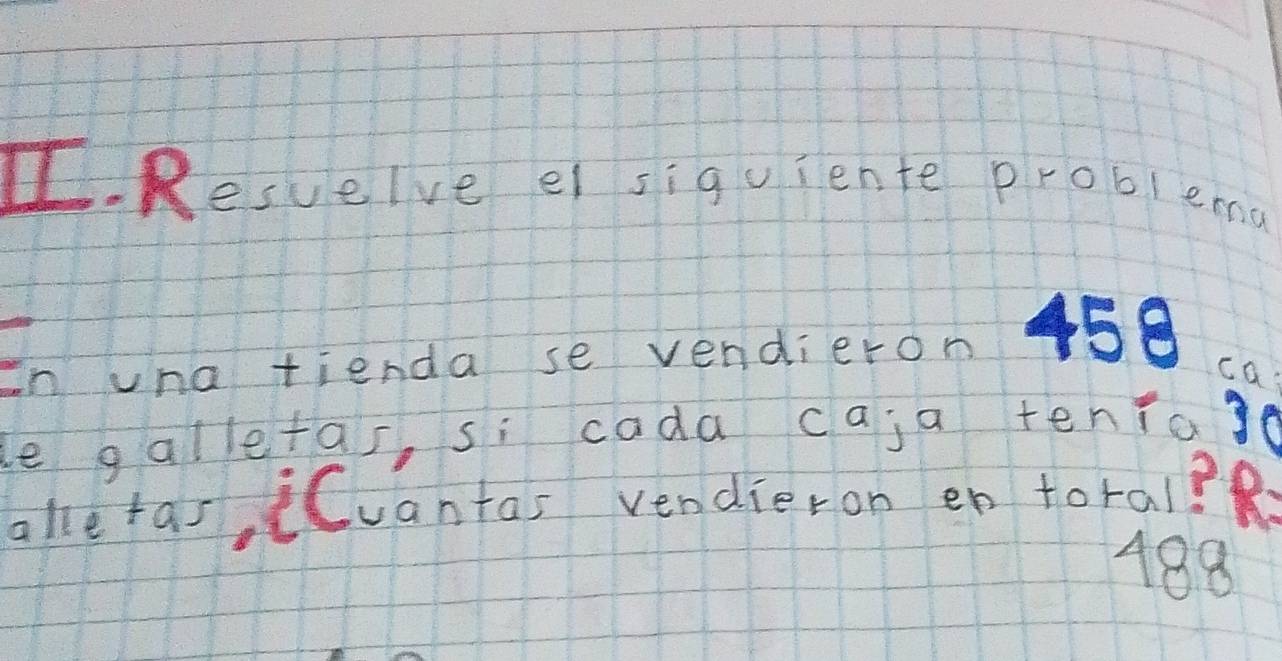 II.-Resuelve el siguiente problema
En una tienda se vendieron 458 ca
de galletas, si cada caja tenía 30
alletas, ¿Cuantas vendieron en total? R=
488